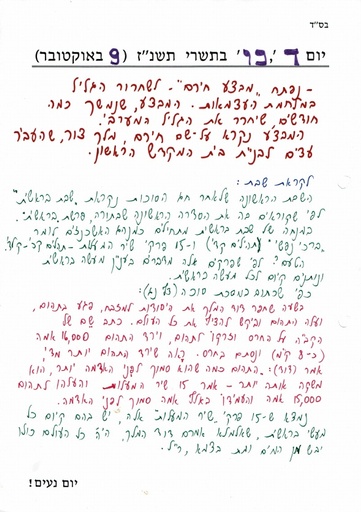 בס"ד
יום ד', כו' בתשרי תשנ"ז (9 באוקטובר)
- נפתח "מבצע חירם" - לשחרור הגליל
במלחמת העצמאות. המבצע, שנמשך כמה
חודשים, שיחרר את הגליל המערבי.
המבצע נקרא על-שם חירם, מלך צור, שהעביר
עצים לבנית בית המקדש הראשון.
לקראת שבת:
השבת הראשונה שלאחר חג הסוכות נקראת "שבת בראשית"
לפי שקוראים בה את הסדרה הראשונה שבתורה, פרשת בראשית.
במנחה של שבת בראשית מתחילים כמנהג האשכנזים לומר
"ברכי נפשי" (תהילים קד') ו-15 פרקי "שיר המעלות" - תהלים קכ'-קלד'.
הטעם? לפי שפרקים אלה מדברים בענין מעשה בראשית
ונותנים קיום לכל מעשה בראשית.
כפי שכתוב במסכת סוכה (דף נג):
בשעה שחפר דוד המלך את היסודות למזבח, פגע בתהום,
ועלה התהום וביקש להציף את כל העולם. כתב שם של
הקב"ה על החרס וזרקו לתהום, וירד התהום 16,000 אמה
(כ-8 ק"מ) ונסתם בחרס. ראה שירד התהום יותר מדי
אמר (דוד): "התהום כמה שהוא סמוך לפני האדמה יותר, הוא
משקה אותה יותר - אמר 15 שיר המעלות והעלהו לתהום
15,000 אמה והעמידו באלף אמה סמוך לפני האדמה.
נמצא ש-15 פרקי "שיר המעלות" אלה, יש בהם קיום כל
מעשי בראשית, שאלמלא אמרם דוד המלך, היה כל העולם כולו
יבש מן המים ומת בצמא, ח"ו.
יום נעים!